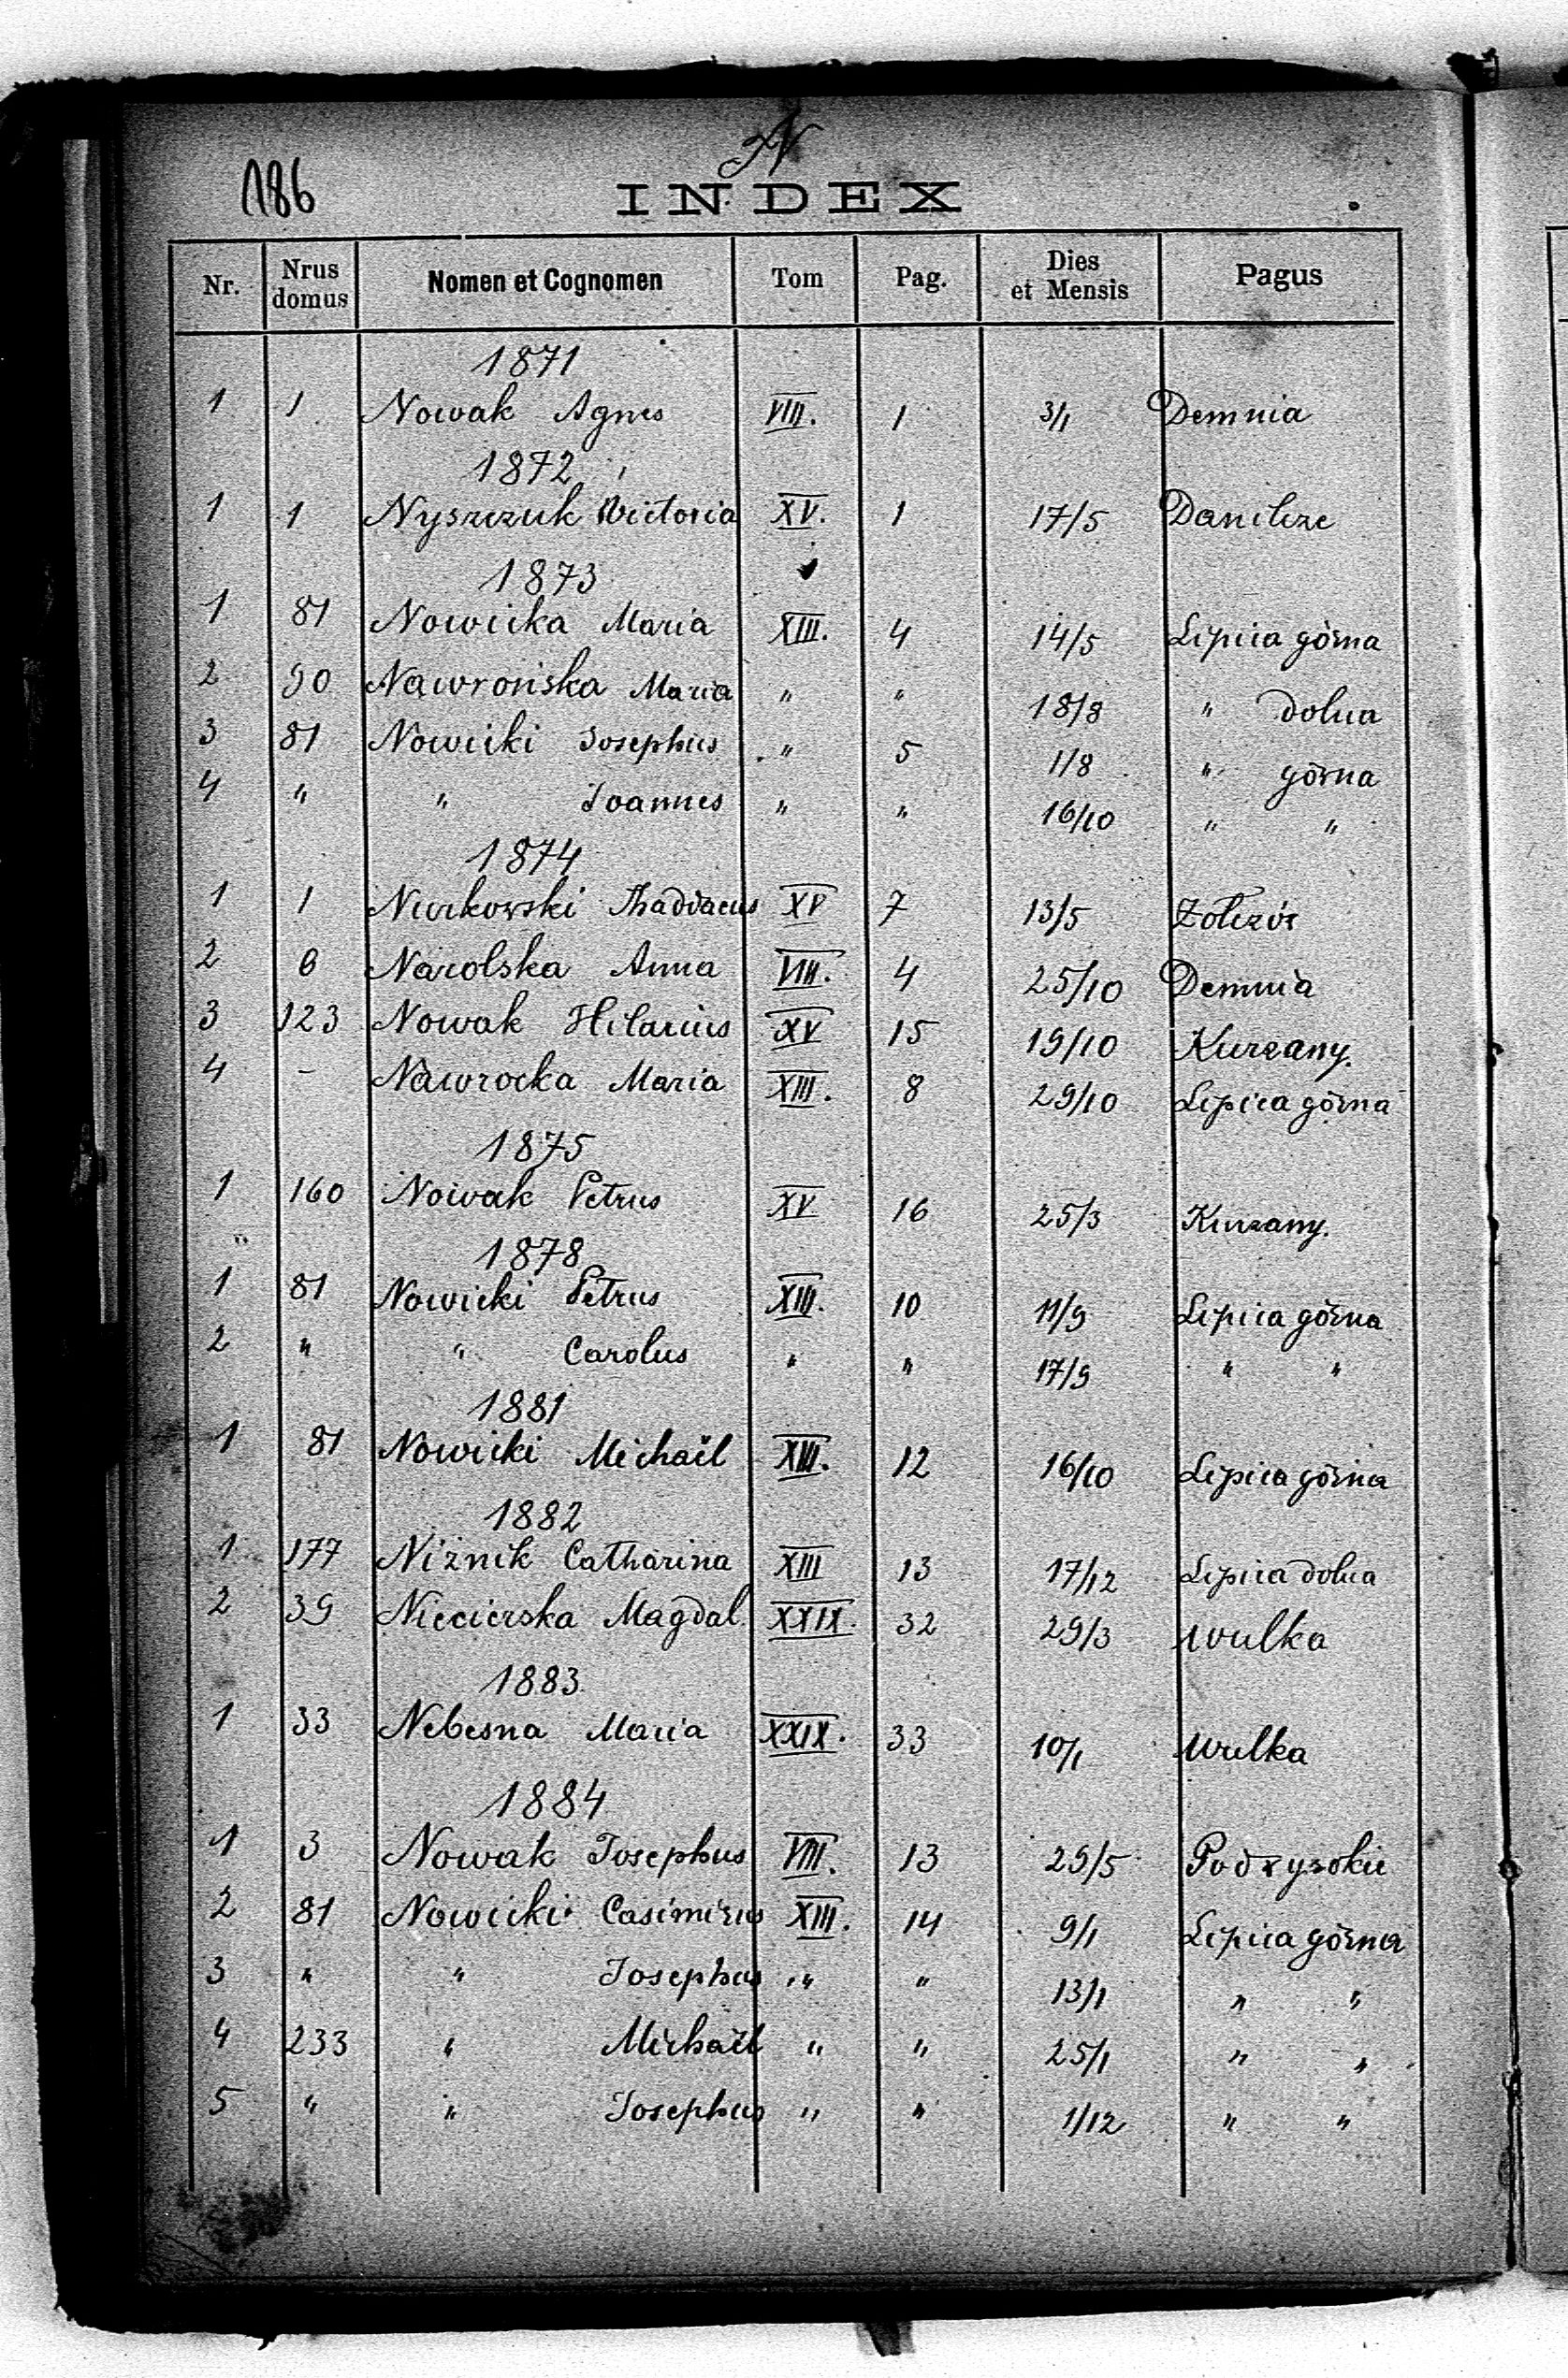 N
186
INDEX
Nr. Nrus domus Nomen et Cognomen Tom Pag. Dies et Mensis Pagus
1871
1 1 Nowak Agnes VIII. 1 3/1 Demnia
1872
1 1 Nyszczuk Victoria XV. 1 17/5 Danilcze
1873
1 81 Nowicka Maria XIII. 4 14/5 Lipica górna
2 90 Nawrońska Maria " " 18/8 " dolna
3 81 Nowicki Josephus " 5 1/8 " górna
4 " " Joannes " " 16/10 " "
1874
1 1 Nurkowski Thaddaeus XV 7 13/5 Zolczów
2 6 Narolska Anna VIII. 4 25/10 Demnia
3 123 Nowak Hilarius XV 15 19/10 Kurzany.
4 - Nawrocka Maria XIII. 8 29/10 Lipica górna
1875
1 160 Nowak Petrus XV 16 25/3 Kurzany.
"
1878
1 81 Nowicki Petrus XIII. 10 11/9 Lipica górna
2 " " Carolus " " 17/9 " "
1881
1 81 Nowicki Michaël XIII. 12 16/10 Lipica górna
1882
1 177 Niżnik Catharina XIII 13 17/12 Lipica dolna
2 39 Niecierska Magdal. XXIX. 32 29/3 Wulka
1883
1 33 Nebesna Maria XXIX. 33 10/1 Wulka
1884
1 3 Nowak Josephus VIII. 13 29/5 Podwysokie
2 81 Nowicki Casimirus XIII. 14 9/1 Lipica górna
3 " " Josephus " " 13/1 " "
4 233 " Michaël " " 25/1 " "
5 " " Josephus " " 1/12 " "